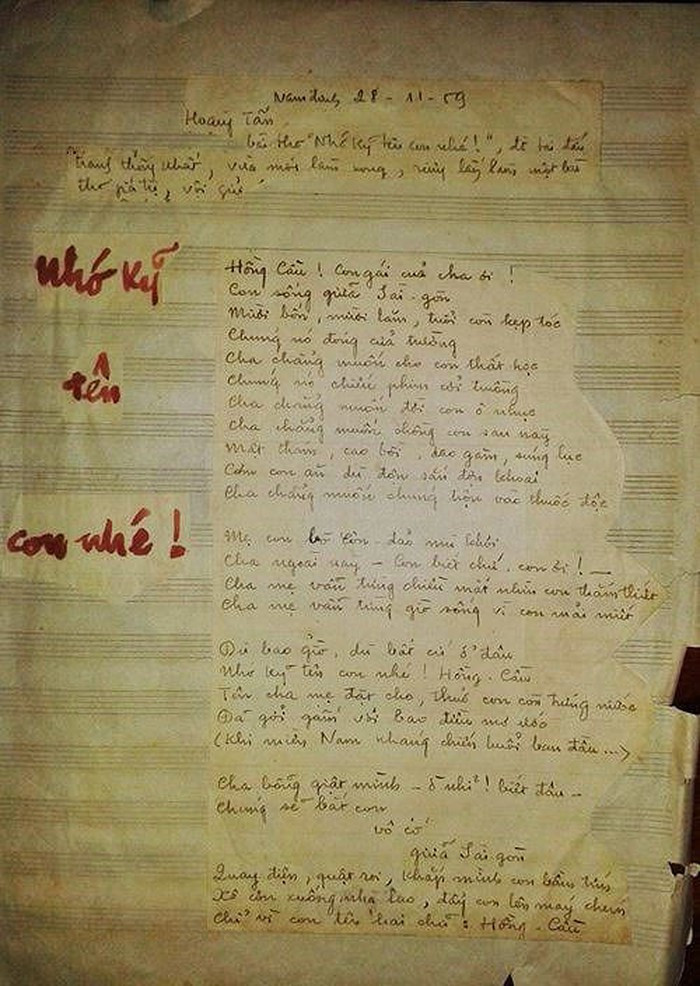 Nam định 28-11-59
Hoàng Tấn
bài thơ "Nhớ kỹ tên con nhé!", đề tài đấu
tranh thống nhất, vừa mới làm xong,
thơ giá trị, vội gửi
Nhớ kỹ
tên
con nhé!
Hồng Cầu! Con gái của cha ơi!
Con sống giữa Sài-gòn
Mười bốn, mười lăm, tuổi còn kẹp tóc
Chúng nó đóng cửa trường
Cha chẳng muốn cho con thất học
Chúng nó chiếu phim cởi truồng
Cha chẳng muốn đời con ô nhục
Cha chẳng muốn chồng con sau này
Mật thám, cao bồi, dao găm, súng lục
Cơm con ăn dù độn sắn độn khoai
Cha chẳng muốn chúng trộn vào thuốc độc
Mẹ con ở Côn-đảo mù khơi
Cha ngoài này – Con biết chứ, con ơi! –
Cha mẹ vẫn từng chiều mắt nhìn con thắm thiết
Cha mẹ vẫn từng giờ sống vì con mải miết
Dù bao giờ, dù bất cứ ở đâu
Nhớ kỹ tên con nhé! Hồng-Cầu
Tên cha mẹ đặt cho, thuở con còn trứng nước
Đã gởi gắm với bao điều mơ ước
(Khi miền Nam kháng chiến buổi ban đầu...)
Cha bỗng giật mình – ồ nhỉ! biết đâu –
Chúng sẽ bắt con
vô cớ
giữa Sài gòn
Quay điện, quật roi, khắp mình con bầm tím
Xô con xuống nhà lao, đẩy con lên máy chém
Chỉ vì con tên hai chữ: Hồng-Cầu